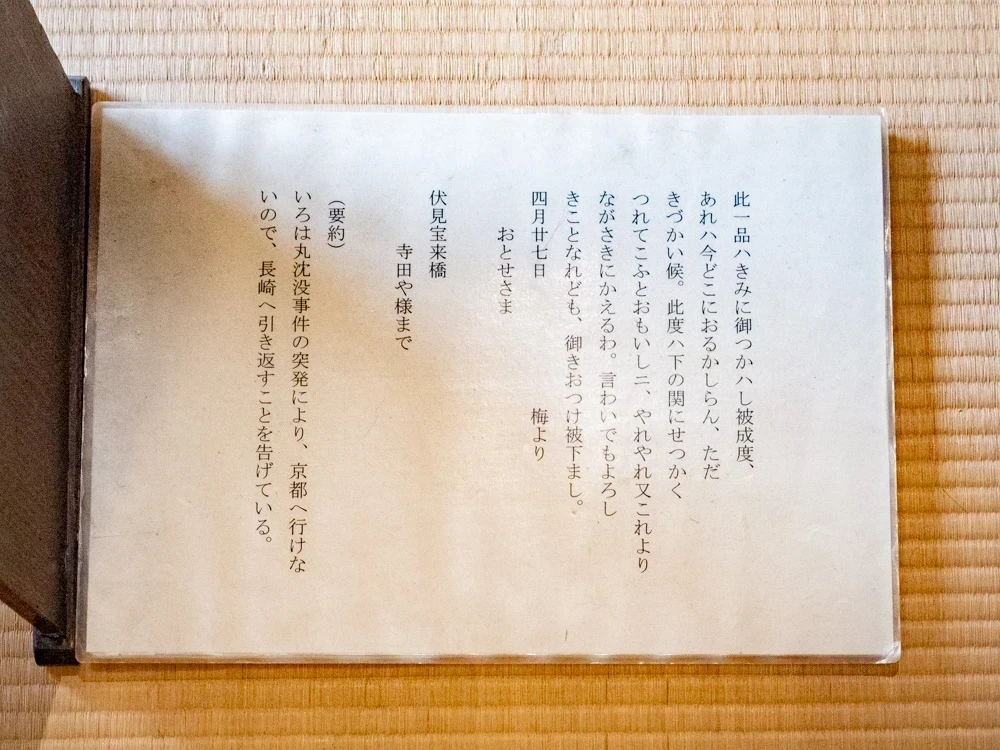 此一品ハきみに御つかハし被成度、
あれハ今どこにおるかしらん、ただ
きづかい候。此度ハ下の関にせつかく
つれてこふとおもいしニ、やれやれ又これより
ながさきにかえるわ。言わいでもよろし
きことなれども、御きおつけ被下まし。
四月廿七日 梅より
おとせさま
伏見宝来橋
寺田や様まで
(要約)
いろは丸沈没事件の突発により、京都へ行けな
いので、長崎へ引き返すことを告げている。